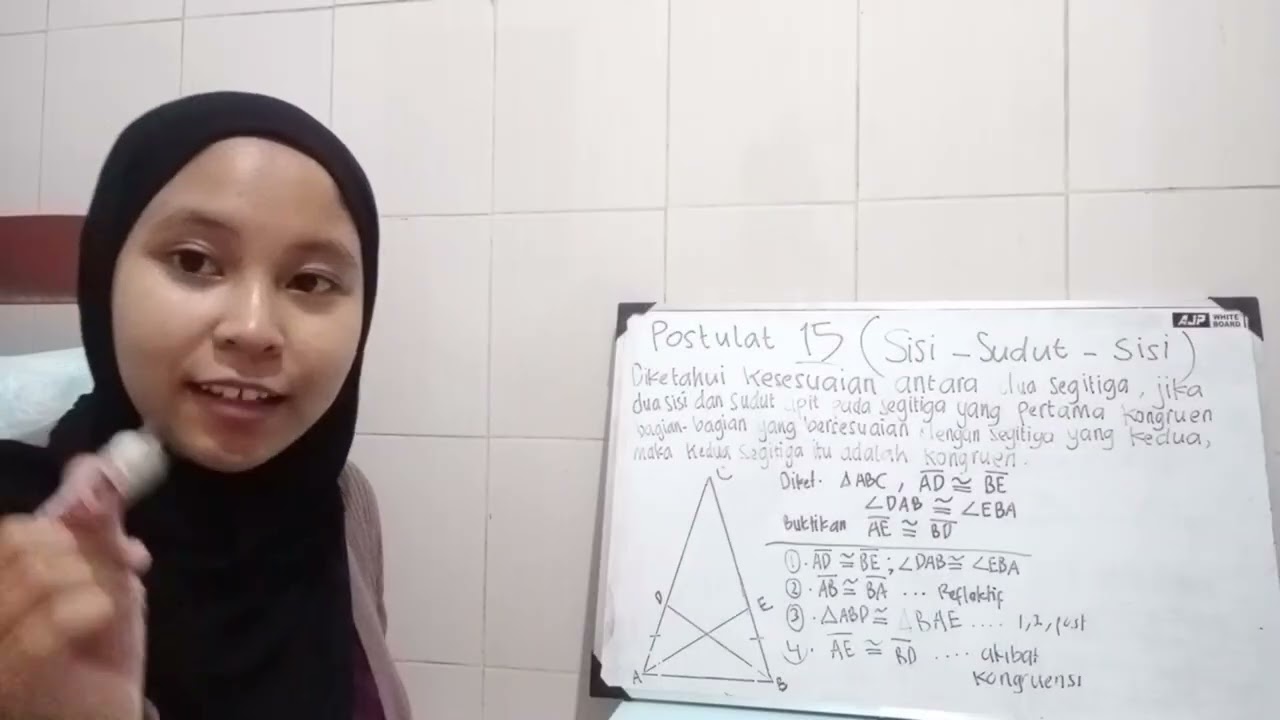 AJP WHITE BOARD
Postulat 15 (Sisi - Sudut - Sisi)
Diketahui Kesesuaian antara dua segitiga, jika
dua sisi dan sudut apit pada segitiga yang pertama kongruen
bagian-bagian yang bercesuaian dengan segitiga yang kedua,
maka kedua segitiga itu adalah kongruen.
Diket. △ABC, A̅D̅ ≅ B̅E̅
∠DAB ≅ ∠EBA
Buktikan A̅E̅ ≅ B̅D̅
①. A̅D̅ ≅ B̅E̅ ; ∠DAB ≅ ∠EBA
②. A̅B̅ ≅ B̅A̅ ... Reflaktif
③. △ABD ≅ △BAE .... 1,2, post
4. A̅E̅ ≅ B̅D̅ .... akibat
kongruensi
C
D
E
A
B